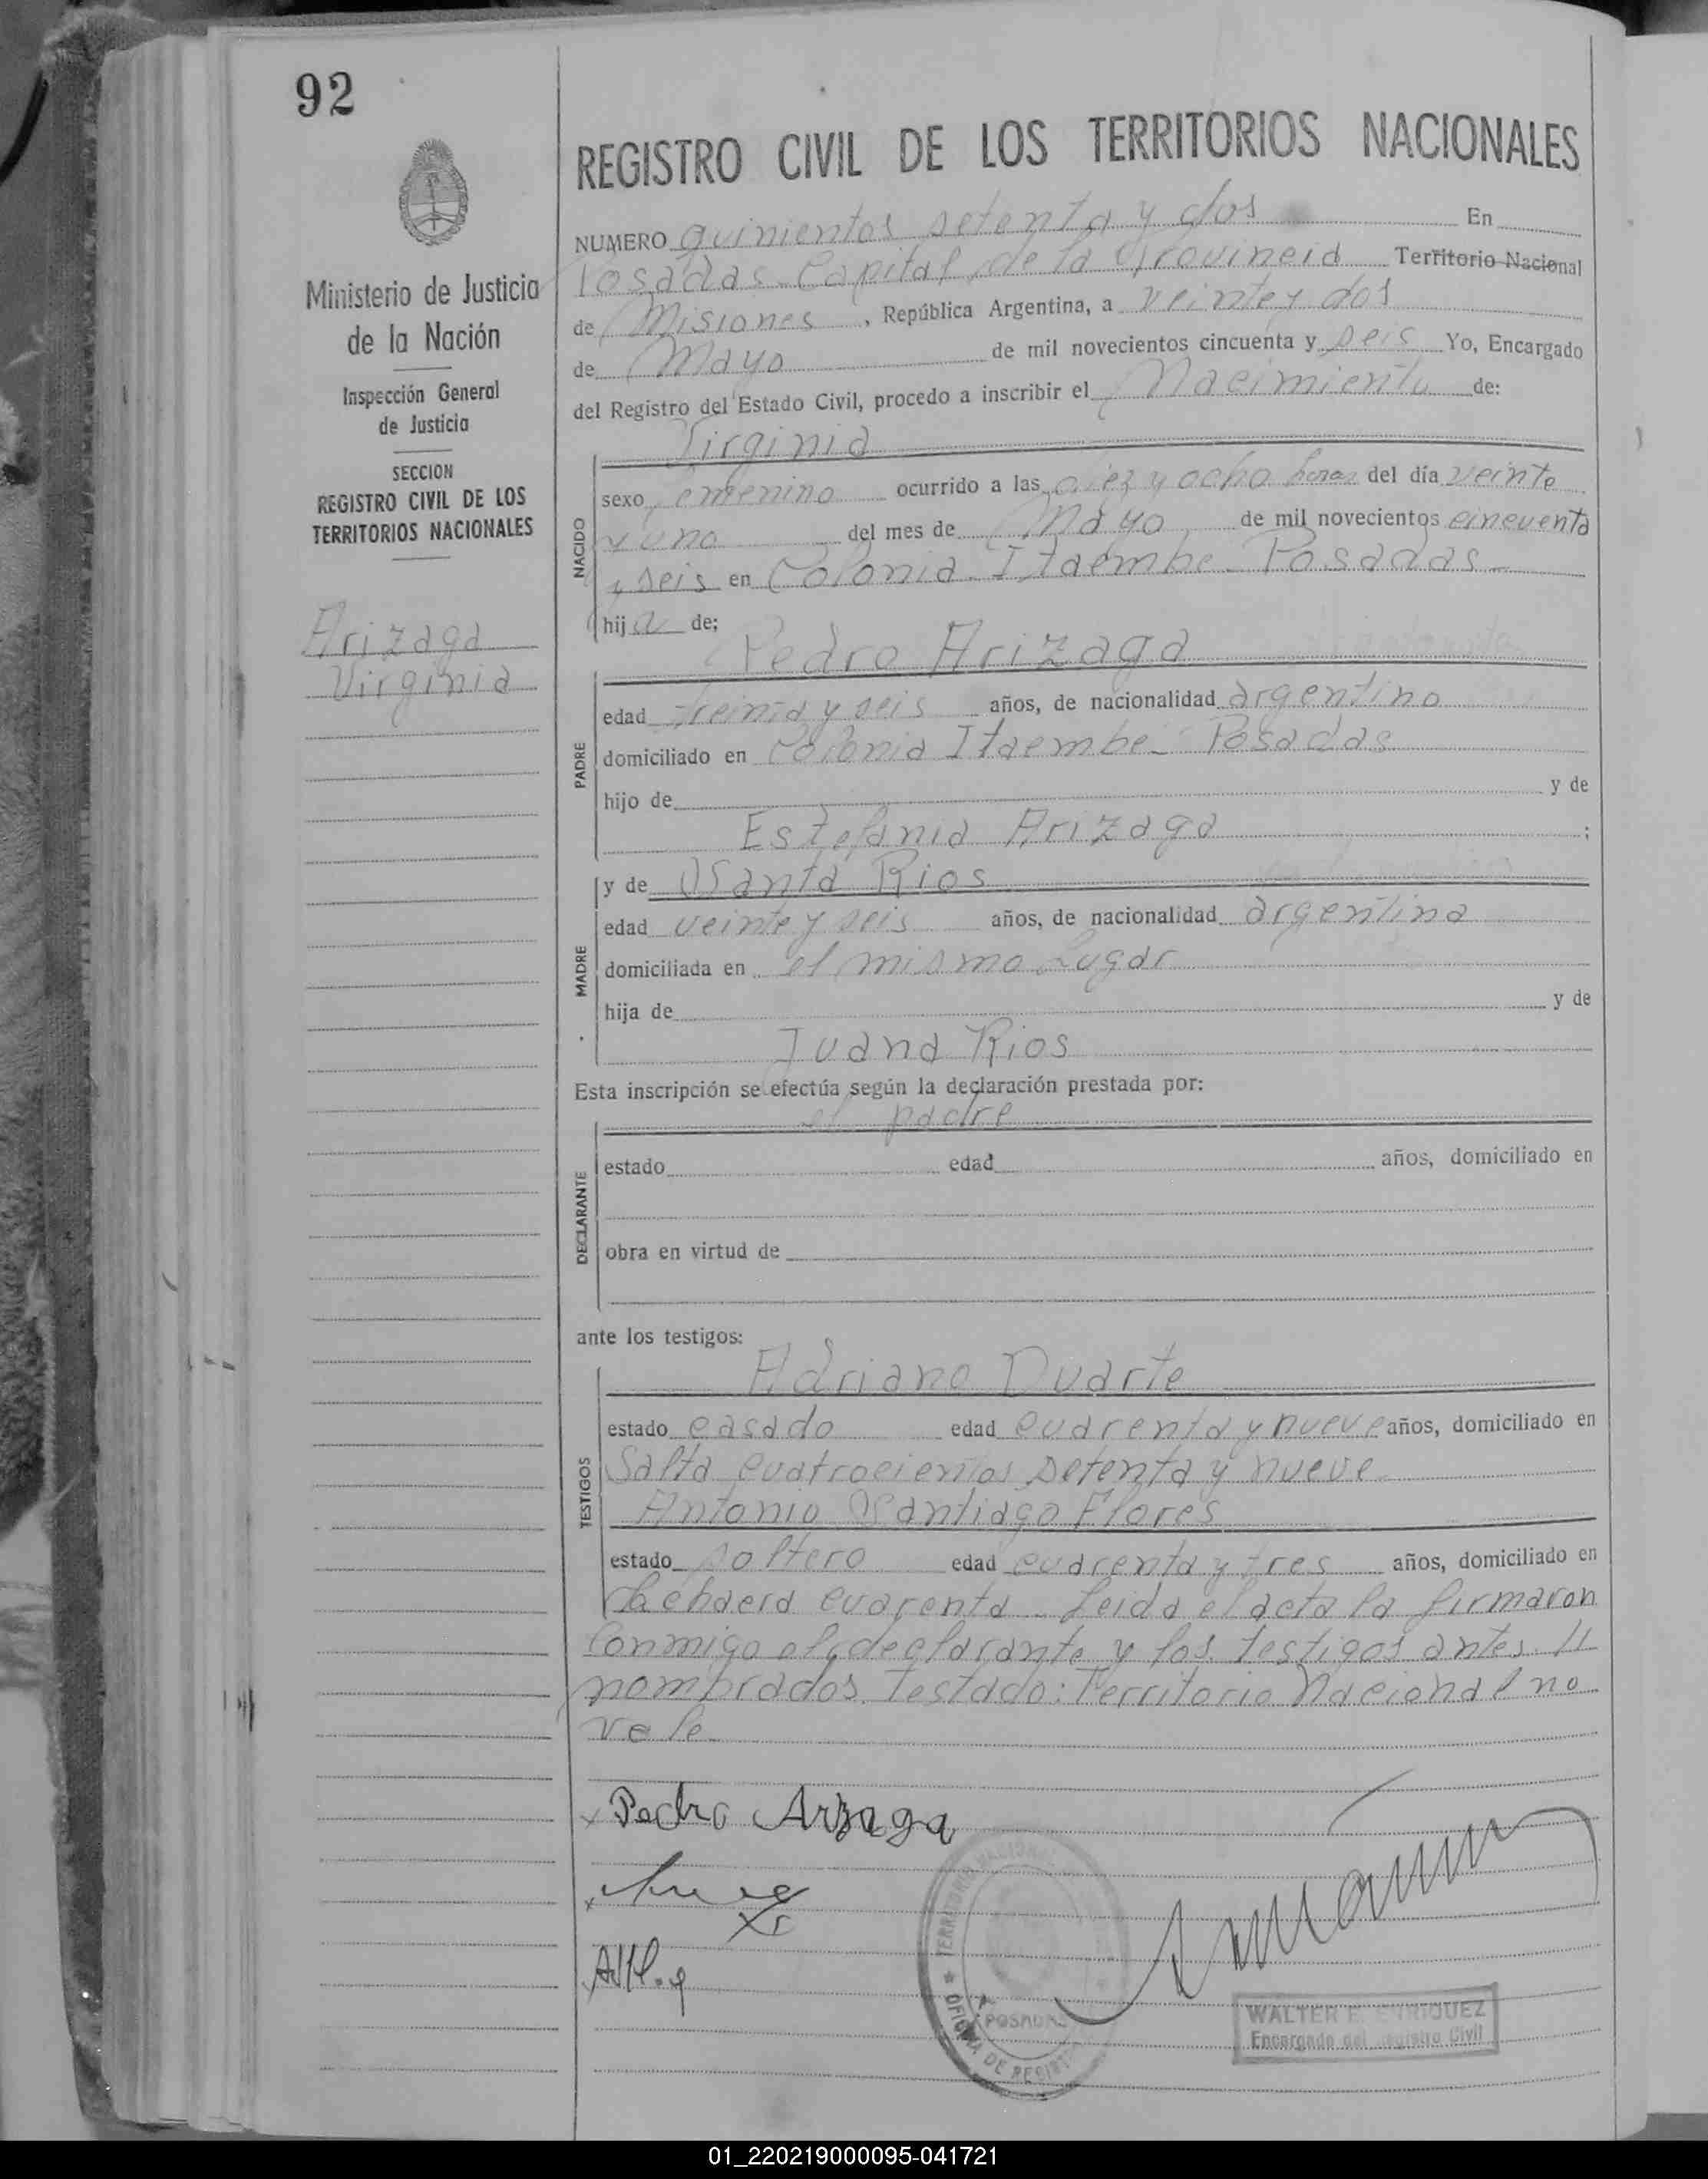 92
Ministerio de Justicia
de la Nación
Inspección General
de Justicia
SECCION
REGISTRO CIVIL DE LOS
TERRITORIOS NACIONALES
Arizaga
Virginia
REGISTRO CIVIL DE LOS TERRITORIOS NACIONALES
NUMERO quinientos setenta y dos En
Posadas Capital de la Provincia Territorio Nacional
de Misiones, República Argentina, a veinte y dos
de Mayo de mil novecientos cincuenta y seis Yo, Encargado
del Registro del Estado Civil, procedo a inscribir el Nacimiento de:
Virginia
NACIDO
sexo femenino ocurrido a las diez y ocho horas del día veinte
y uno del mes de Mayo de mil novecientos cincuenta
y seis en Colonia Itaembe - Posadas -
hija de;
Pedro Arizaga
PADRE
edad treinta y seis años, de nacionalidad argentino
domiciliado en Colonia Itaembe - Posadas
hijo de y de
Estefania Arizaga ;
y de Santa Rios
MADRE
edad veinte y seis años, de nacionalidad argentina
domiciliada en el mismo Lugar
hija de y de
Juana Rios
Esta inscripción se efectúa según la declaración prestada por:
el padre
DECLARANTE
estado edad años, domiciliado en
obra en virtud de
ante los testigos:
Adriano Duarte
TESTIGOS
estado casado edad cuarenta y nueve años, domiciliado en
Salta cuatrocientos setenta y nueve
Antonio Santiago Flores
estado soltero edad cuarenta y tres años, domiciliado en
Chacra cuarenta - Leida el acta la firmaron
Conmigo el declarante y los testigos antes
nombrados. Testado: Territorio Nacional no
vale
Pedro Arizaga
TERRITORIO NACIONAL
POSADAS
OFICINA DE REGISTRO
WALTER E. ENRIQUEZ
Encargado del Registro Civil
01_220219000095-041721